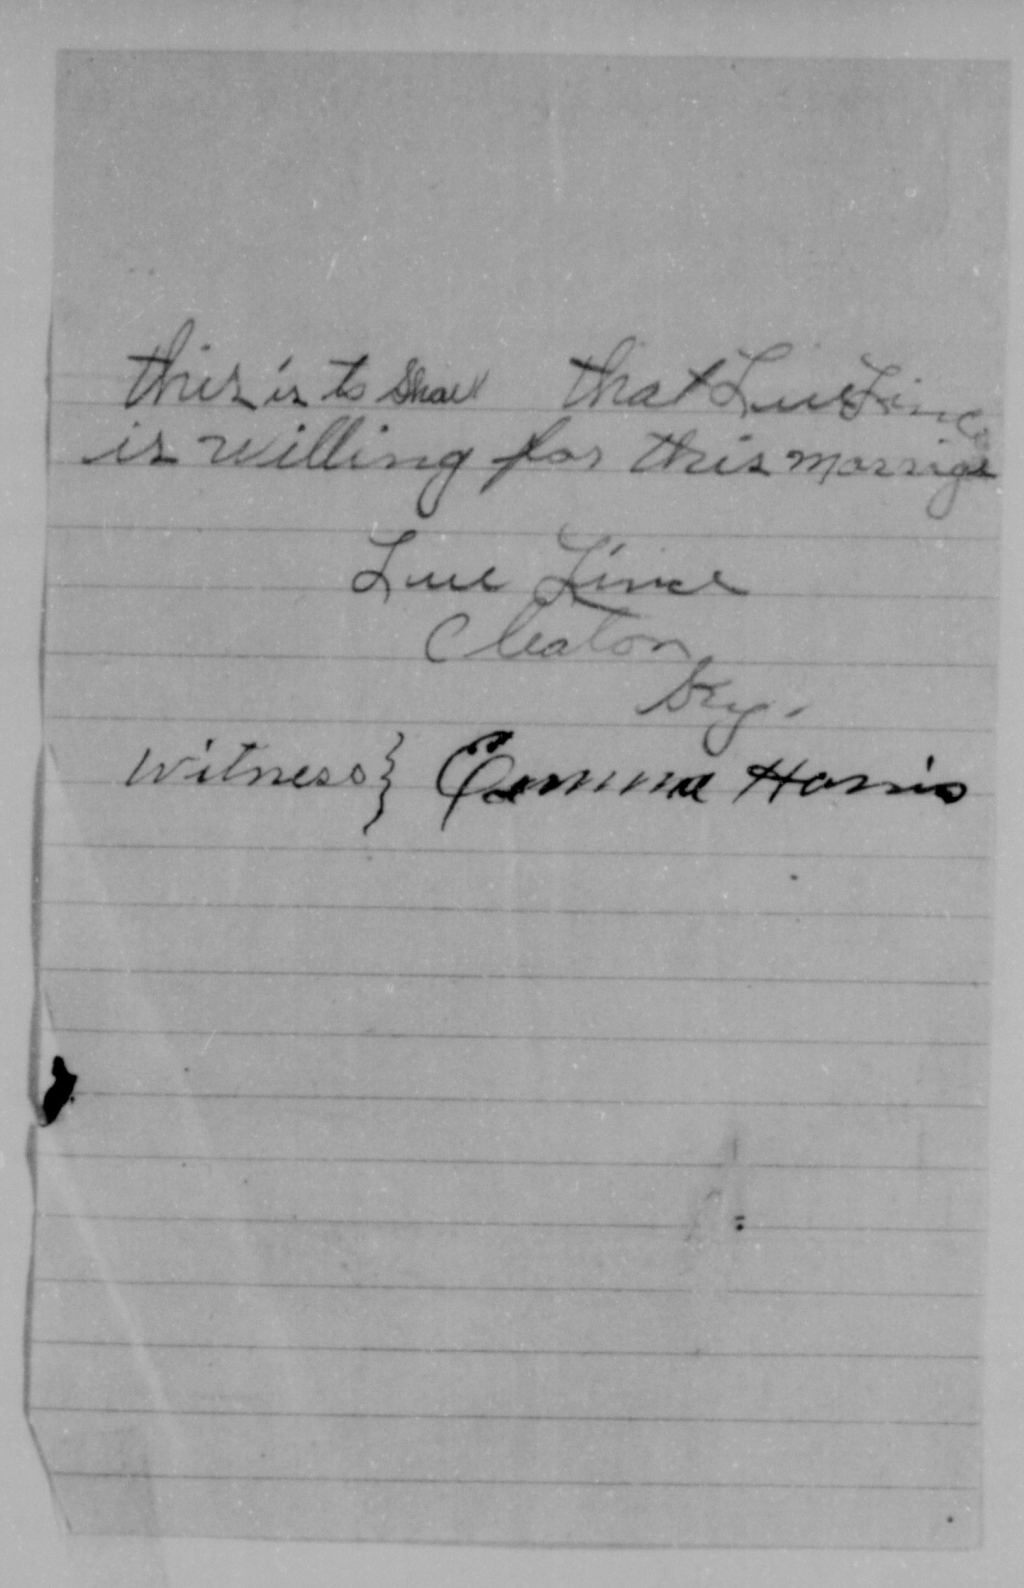 this is to show that Lue Vince
is willing for this marrige
Lue Vince
Cleaton
Ky.
Witness} Emma Harris